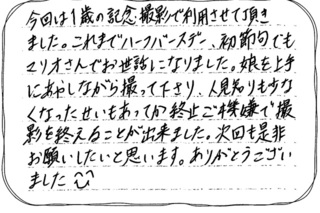 今回は1歳の記念撮影で利用させて頂き
ました。これまでハーフバースデー、初節句でも
マリオさんでお世話になりました。娘を上手
にあやしながら撮って下さり、人見知りも少な
くなったせいもあってか終止ご機嫌で撮
影を終えることが出来ました。次回も是非
お願いしたいと思います。ありがとうござい
ました